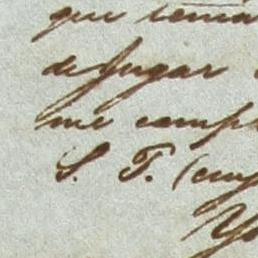 que tenía
de jugar
me comp
S. T. (emp
Yo